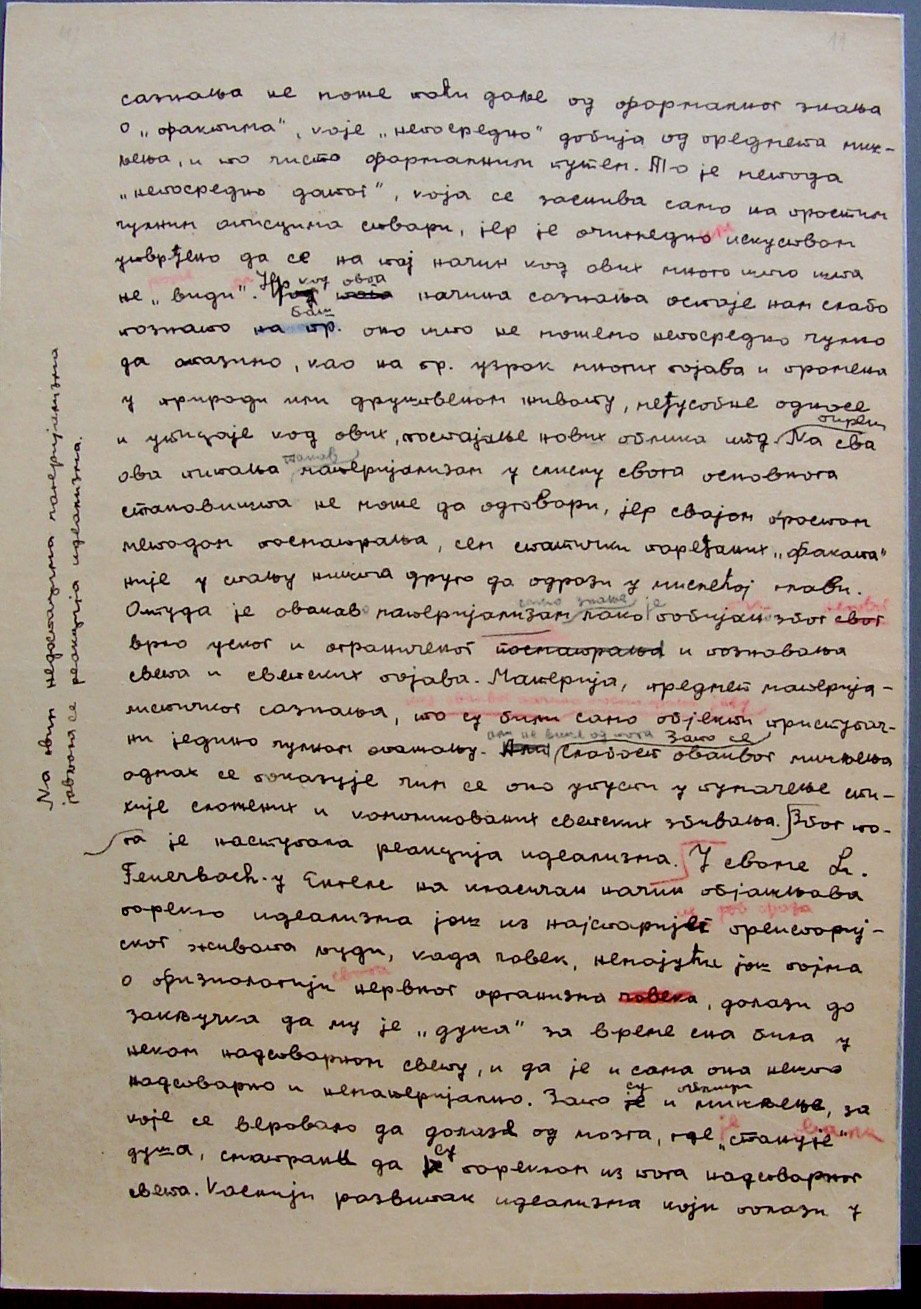 сазнања не може поћи даље од формалног знања
о „фактима", које „непосредно" добија од предмета миш-
љења, и то чисто формалним путем. То је метода
„непосредно датог", која се заснива само на простим
чулним описима ствари, јер је очигледно искуством
утврђено да се на тај начин код ових много што шта
не „види". Јер код овога начина сазнања остаје нам слабо
познато баш оно што не можемо непосредно чулно
да опазимо, као на пр. узрок многих појава и промена
у природи или друштвеном животу, међусобне односе
и утицаје код ових, постајање нових облика итд. На сва
ова питања такав материјализам у смислу свога основнога
становишта не може да одговори, јер својом простом
методом посматрања, сем статички поређаних „факата"
није у стању ништа друго да одрази у мислећој глави.
Отуда је овакав материјализам лако побијан због свог
врло уског и ограниченог посматрања и познавања
света и светских појава. Материја, предмет материја-
листичког сазнања, то су били само објекти приступач-
ни једино чулном опажању. Зато се слабост оваквог мишљења
одмах се показује чим се оно упусти у тумачење сти-
хије сложених и компликованих светских збивања. Због то-
га је наступала реакција идеализма. У своме L.
Feuerbach-у Енгелс на класичан начин објашњава
порекло идеализма још из најстаријег преисториј-
ског живота људи, када човек, немајући још појма
о физиологији нервног организма човека, долази до
закључка да му је „душа" за време сна била у
неком надстварном свету, и да је и сама она нешто
надстварно и нематеријално. Зато су и облици мишљења, за
које се веровало да долазе од мозга, где „станује"
душа, сматрани да су пореклом из тога надстварног
света. Каснији развитак идеализма који полази у
На овим недостацима материјализма
јавља се реакција идеализма.